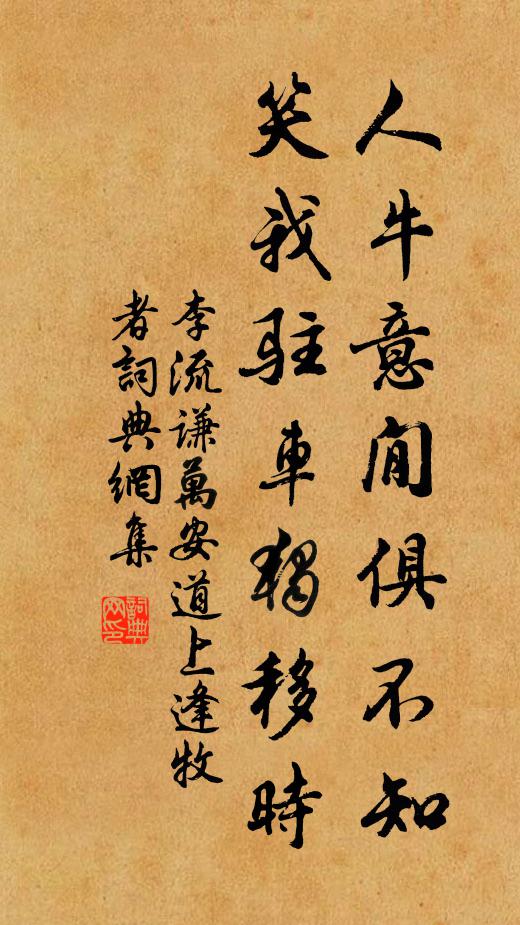 人牛意閒俱不知
笑我駐車獨移時
李流谦萬安道上逢牧
者詞典網集
詞典
网印